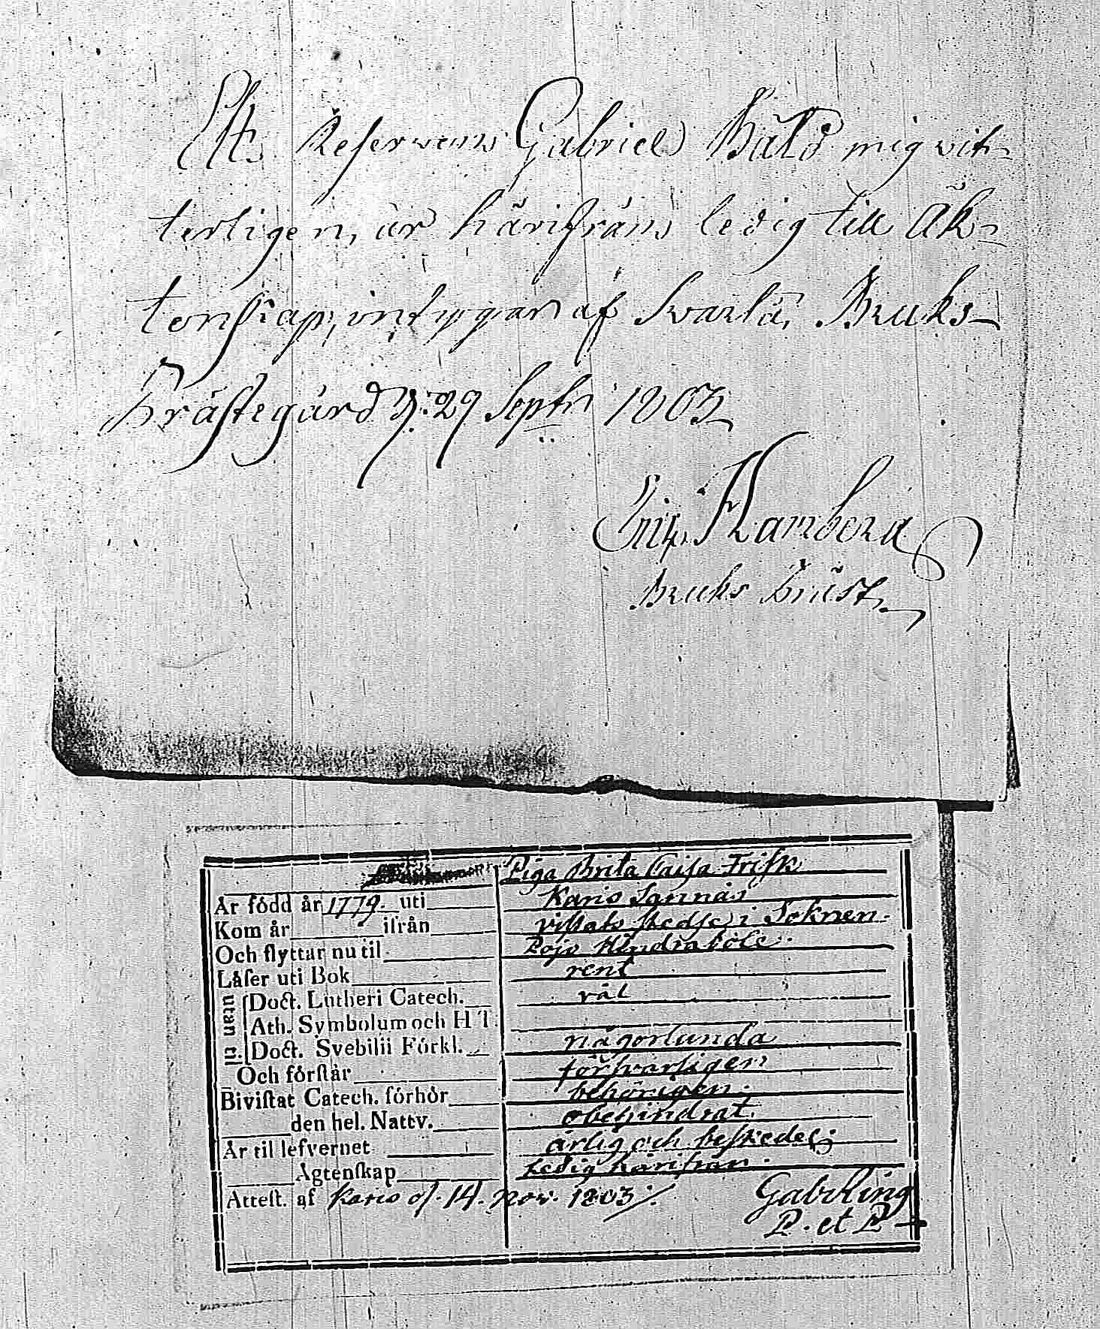 Att Reserven Gabriel Båld mig vit-
terligen, är härifrån ledig till Äk-
tenskap, intygar af Svartå Bruks-
Prästegård d: 29 Septr 1803
Eric Hamberg
Bruks Präst.
Piga Brita Caisa Frisk
Är född år 1779. uti Karis Sannäs
Kom år ifrån vistats stedse i Soknen.
Och flyttar nu til Pojo Hindraböle.
Låser uti Bok rent
utan til Doct. Lutheri Catech. väl
Ath. Symbolum och H T.
Doct. Svebilii Förkl. någorlunda
Och förstår försvarligen
Bivistat Catech. förhör behörigen.
den hel. Nattv. obehindrat.
Är til lefvernet ärlig och beskedel:
Ägtenskap Ledig härifrån.
Attest. af Karis d. 14. Nov. 1803 /.
P. et P